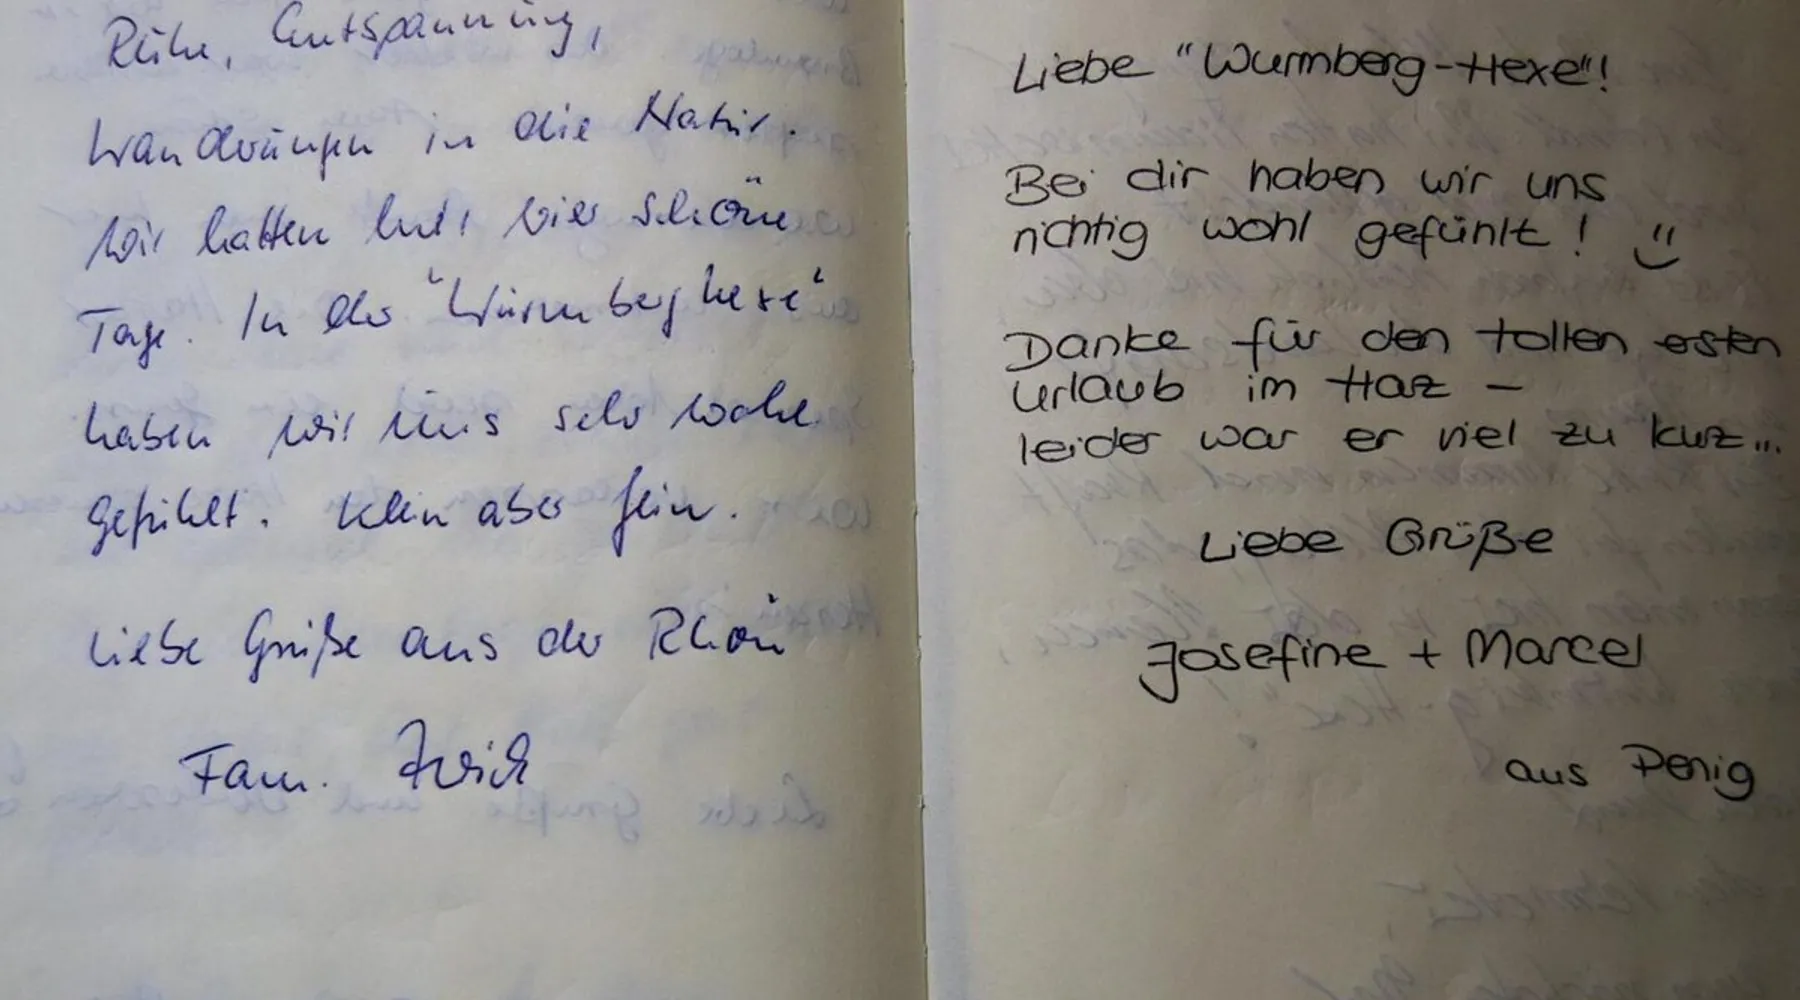 Ruhe, Entspannung,
Wandrungen in die Natur.
Wir hatten hier vier schöne
Tage. In der "Wurmberghexe"
haben wir uns sehr wohl
gefühlt. Klein aber fein.
Liebe Grüße aus der Rhön
Fam.
Liebe "Wurmberg-Hexe"!
Bei dir haben wir uns
richtig wohl gefühlt!
Danke für den tollen ersten
Urlaub im Harz –
leider war er viel zu kurz...
Liebe Grüße
Josefine + Marcel
aus Penig